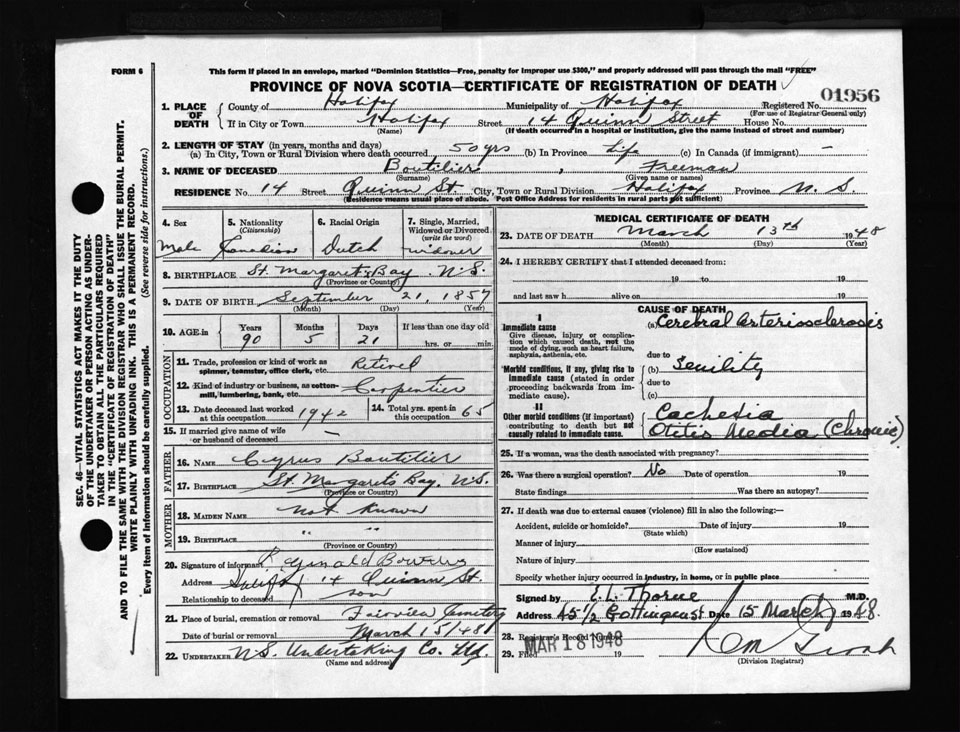 FORM 6
This form if placed in an envelope, marked "Dominion Statistics—Free, penalty for improper use $300," and properly addressed will pass through the mail "FREE"
PROVINCE OF NOVA SCOTIA—CERTIFICATE OF REGISTRATION OF DEATH
01956
1. PLACE OF DEATH
County of Halifax Municipality of Halifax Registered No.
(For use of Registrar General only)
If in City or Town Halifax Street 14 Quinn Street House No.
(Name) (If death occurred in a hospital or institution, give the name instead of street and number)
2. LENGTH OF STAY (in years, months and days)
(a) In City, Town or Rural Division where death occurred 50 yrs (b) In Province Life (c) In Canada (if immigrant) —
3. NAME OF DECEASED Boutilier, Freeman
(Surname) (Given name or names)
RESIDENCE No. 14 Street Quinn St. City, Town or Rural Division Halifax Province N. S.
(Residence means usual place of abode. Post Office Address for residents in rural parts not sufficient)
4. Sex
Male
5. Nationality
(Citizenship)
Canadian
6. Racial Origin
Dutch
7. Single, Married, Widowed or Divorced
(write the word)
widower
8. BIRTHPLACE St. Margaret's Bay N.S.
(Province or Country)
9. DATE OF BIRTH September 21, 1857
(Month) (Day) (Year)
10. AGE in
Years Months Days If less than one day old
90 5 21 hrs. or min.
OCCUPATION
11. Trade, profession or kind of work as spinner, teamster, office clerk, etc. Retired
12. Kind of industry or business, as cotton-mill, lumbering, bank, etc. Carpentier
13. Date deceased last worked at this occupation 1942
14. Total yrs. spent in this occupation 65
15. If married give name of wife or husband of deceased —
FATHER
16. NAME Cyrus Boutilier
17. BIRTHPLACE St. Margaret's Bay, N.S.
(Province or Country)
MOTHER
18. MAIDEN NAME Not Known
19. BIRTHPLACE " "
(Province or Country)
20. Signature of informant
Address Halifax 14 Quinn St.
Relationship to deceased son
21. Place of burial, cremation or removal Fairview Cemetery
Date of burial or removal March 15/48
22. UNDERTAKER N.S. Undertaking Co. Ltd.
(Name and address)
MEDICAL CERTIFICATE OF DEATH
23. DATE OF DEATH March 13th 1948
(Month) (Day) (Year)
24. I HEREBY CERTIFY that I attended deceased from:
19 to 19
and last saw h alive on 19
CAUSE OF DEATH
I
Immediate cause
Give disease, injury or complication which caused death, not the mode of dying, such as heart failure, asphyxia, asthenia, etc.
(a) Cerebral arteriosclerosis
due to
Morbid conditions, if any, giving rise to immediate cause (stated in order proceeding backwards from immediate cause).
(b) Senility
due to
(c)
II
Other morbid conditions (if important) contributing to death but not causally related to immediate cause.
Cachexia
Otitis Media (Chronic)
25. If a woman, was the death associated with pregnancy?
26. Was there a surgical operation? No Date of operation 19
State findings Was there an autopsy?
27. If death was due to external causes (violence) fill in also the following:—
Accident, suicide or homicide? Date of injury 19
(State which)
Manner of injury
(How sustained)
Nature of injury
Specify whether injury occurred in industry, in home, or in public place
Signed by E. L. Thorne M.D.
Address 45 1/2 Gottingen St Date 15 March 1948.
28. Registrar's Record Number
29. Filed 19
MAR 18 1948
(Division Registrar)
SEC. 46—VITAL STATISTICS ACT MAKES IT THE DUTY
OF THE UNDERTAKER OR PERSON ACTING AS UNDER-
TAKER TO OBTAIN ALL THE PARTICULARS REQUIRED
IN THE "CERTIFICATE OF REGISTRATION OF DEATH"
AND TO FILE THE SAME WITH THE DIVISION REGISTRAR WHO SHALL ISSUE THE BURIAL PERMIT.
WRITE PLAINLY WITH UNFADING INK. THIS IS A PERMANENT RECORD.
Every item of information should be carefully supplied. (See reverse side for instructions.)